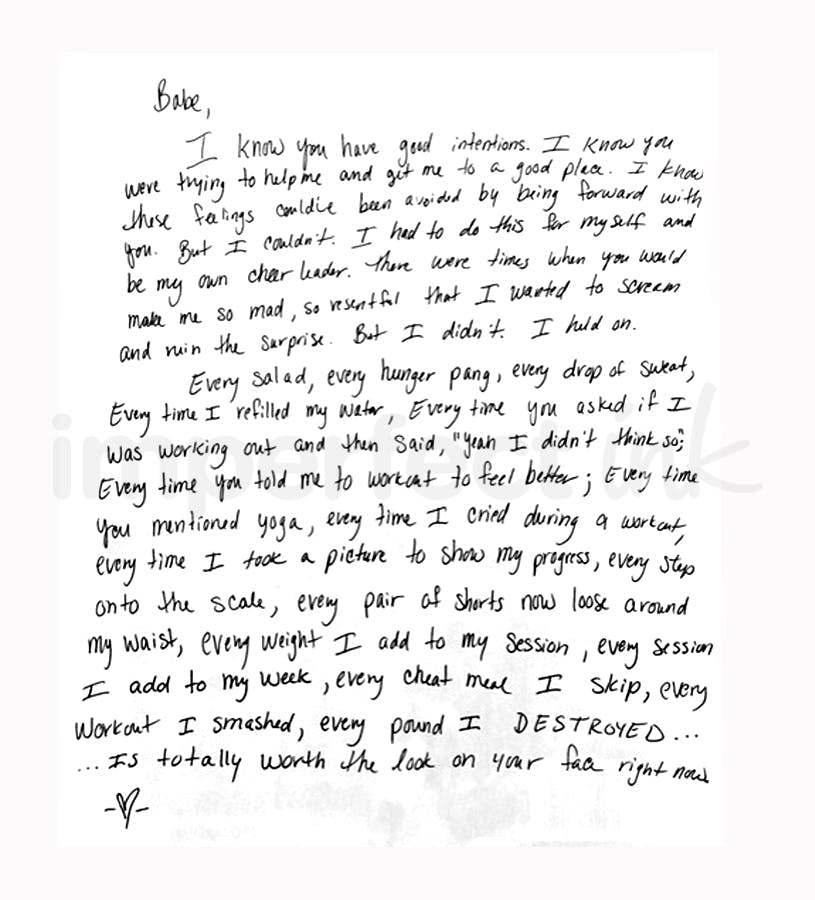 Babe,
I know you have good intentions. I know you
were trying to help me and get me to a good place. I know
these feelings could've been avoided by being forward with
you. But I couldn't. I had to do this for myself and
be my own cheer leader. There were times when you would
make me so mad, so resentful that I wanted to scream
and ruin the surprise. But I didn't. I held on.
Every salad, every hunger pang, every drop of sweat,
Every time I refilled my water, Every time you asked if I
was working out and then said, "yeah I didn't think so";
Every time you told me to workout to feel better; Every time
you mentioned yoga, every time I cried during a workout,
every time I took a picture to show my progress, every step
onto the scale, every pair of shorts now loose around
my waist, every weight I add to my session, every session
I add to my week, every cheat meal I skip, every
workout I smashed, every pound I DESTROYED...
...Is totally worth the look on your face right now
imperfect ink